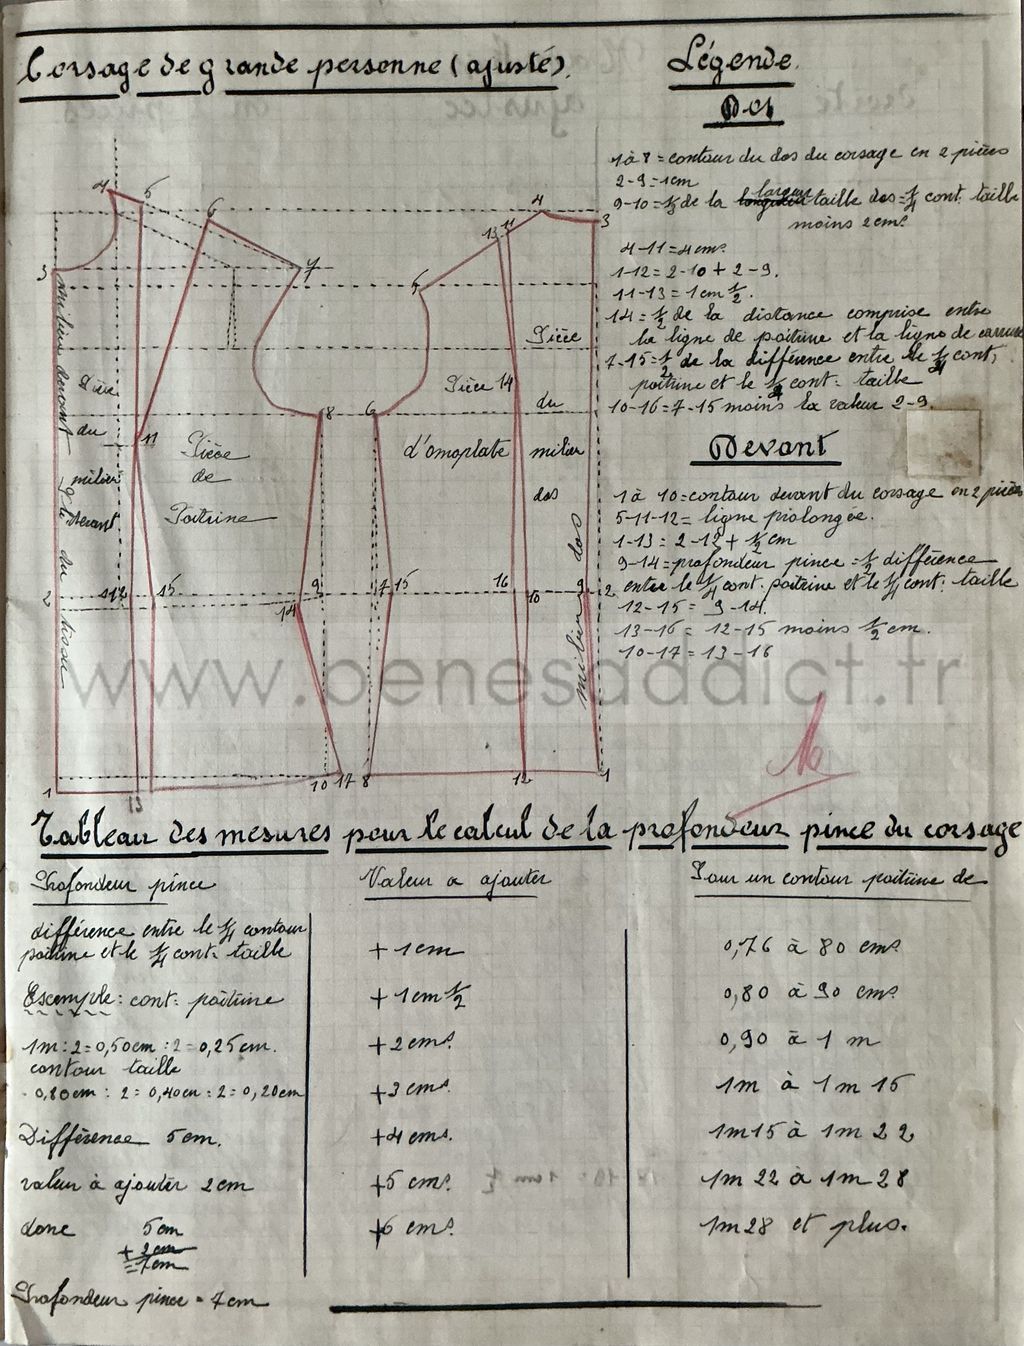 Corsage de grande personne (ajusté).
Légende.
Dos
1 à 8 = contour du dos du corsage en 2 pièces
2-9 = 1cm
9-10 = ½ de la largeur taille dos = ¼ cont. taille
moins 2cms.
4-11 = 4cms.
1-12 = 2-10 + 2-9.
11-13 = 1cm ½.
14 = ½ de la distance comprise entre
la ligne de poitrine et la ligne de carrure
7-15 = ½ de la différence entre le ¼ cont.
poitrine et le ¼ cont. taille
10-16 = 7-15 moins la valeur 2-9.
Devant
1 à 10 = contour devant du corsage en 2 pièces
5-11-12 = ligne prolongée.
1-13 = 2-12 + ½ cm
9-14 = profondeur pince = ½ différence
entre le ¼ cont. poitrine et le ¼ cont. taille
12-15 = 9-14.
13-16 = 12-15 moins ½ cm.
10-17 = 13-16
4
5
6
7
3
8
11
2
12
15
9
14
1
13
10
17
milieu devant
du tissu
Pièce
du
milieu
devant
Pièce
de
Poitrine
4
3
13
11
5
6
14
7
15
16
10
9
2
8
12
1
Pièce
d'omoplate
Pièce
du
milieu
dos
milieu dos
www.benesaddict.fr
16
Tableau des mesures pour le calcul de la profondeur pince du corsage
Profondeur pince
Valeur a ajouter
Pour un contour poitrine de
différence entre le ¼ contour
poitrine et le ¼ cont. taille
Escemple : cont. poitrine
1m : 2 = 0,50cm : 2 = 0,25cm.
contour taille
0,80cm : 2 = 0,40cm : 2 = 0,20cm
Différence 5cm.
valeur à ajouter 2cm
donc 5cm
+ 2cm
= 7cm
Profondeur pince = 7cm
+ 1cm
0,76 à 80 cms
+ 1cm ½
0,80 à 90 cms
+ 2cms.
0,90 à 1 m
+ 3cms.
1m à 1m 15
+ 4cms.
1m15 à 1m 22
+ 5cms.
1m 22 à 1m 28
+ 6 cms.
1m28 et plus.